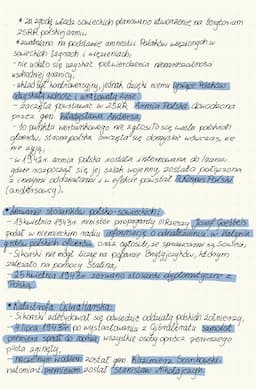 * za zgodą władz sowieckich planowano utworzenie na terytorium
ZSRR polskiej armii,
* zwolniono na podstawie amnestii Polaków więzionych w
sowieckich łagrach i więzieniach,
- nie udało się uzyskać potwierdzenia nienaruszalności
wschodniej granicy,
- układ był kontrowersyjny, jednak dzięki niemu tysiące Polaków
odzyskały wolność i uratowały życie
- zaczęła powstawać w ZSRR Armia Polska dowodzona
przez gen. Władysława Andersa,
- do punktu werbunkowego nie zgłosiło się wielu polskich
oficerów, strona polska zaczęła się obawiać wówczas, że
nie żyją,
- w 1942r. armia polska została ewakuowana do Iranu,
gdzie rozpoczął się jej szlak wojenny, została połączona
z innymi oddziałami i w efekcie powstał 2 Korpus Polski
(andersowcy).
• Zerwanie stosunków polsko-sowieckich:
- 13 kwietnia 1943r. minister propagandy III Rzeszy Josef Goebbels
podał w niemieckim radiu informację o odnalezieniu w Katyniu
grobów polskich oficerów oraz ogłosił, że sprawcami są Sowieci,
- Sikorski nie mógł liczyć na poparcie Brytyjczyków, którym
zależało na pomocy Stalina,
- 25 kwietnia 1943r. zerwano stosunki dyplomatyczne z
Polską.
• Katastrofa Gibraltarska:
- Sikorski zdecydował się odwiedzić oddziały polskich żołnierzy,
- 4 lipca 1943r. po wystartowaniu z Gibraltaru samolot
premiera spadł do morza, wszystkie osoby oprócz pierwszego
pilota zginęły,
- naczelnym wodzem został gen. Kazimierz Sosnkowski
natomiast premierem został Stanisław Mikołajczyk